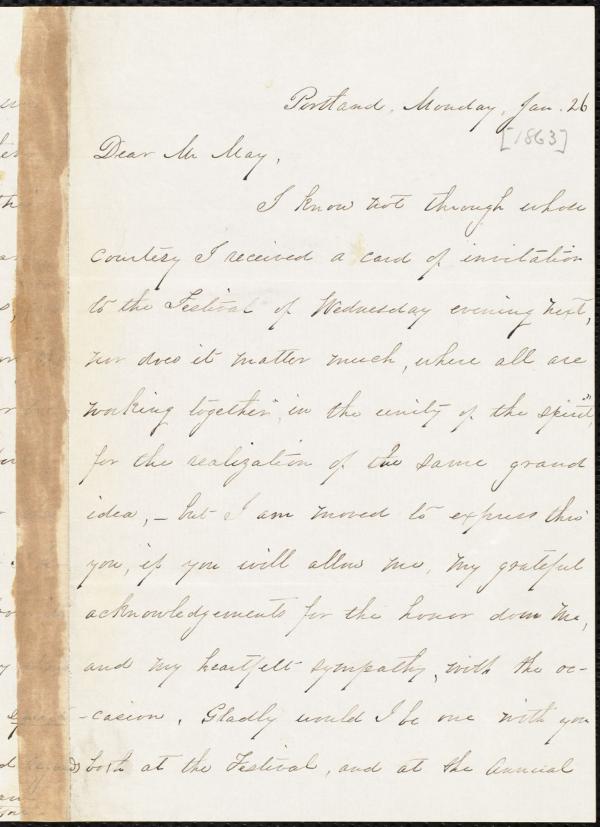 Portland, Monday, Jan. 26
[1863]
Dear Mr May,
I know not through whose
courtesy I received a card of invitation
to the Festival of Wednesday evening next,
nor does it matter much, where all are
working together "in the unity of the spirit",
for the realization of the same grand
idea, - but I am moved to express thro'
you, if you will allow me, my grateful
acknowledgements for the honor done me,
and my heartfelt sympathy, with the oc-
-casion. Gladly would I be one with you
both at the Festival, and at the Annual